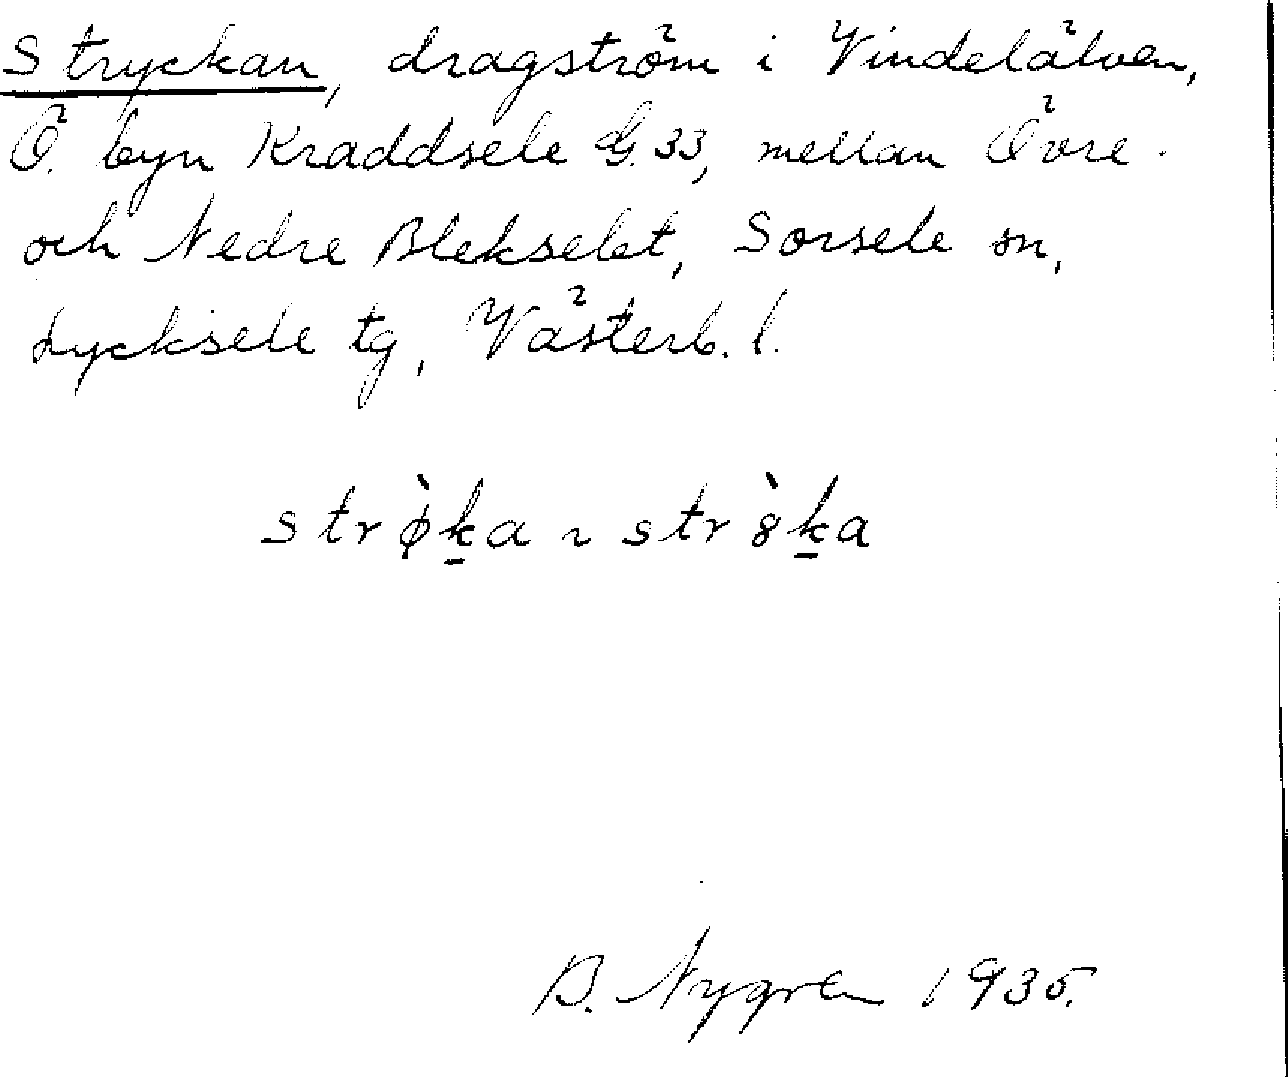 Stryckan, dragström i Vindelälven,
Ö. byn Kraddsele G. 33, mellan Övre-
och Nedre Blekselet, Sorsele sn,
Lycksele tg, Västerb. l.
strø̀k̲a ~ str8̀k̲a
B. Nygren 1935.